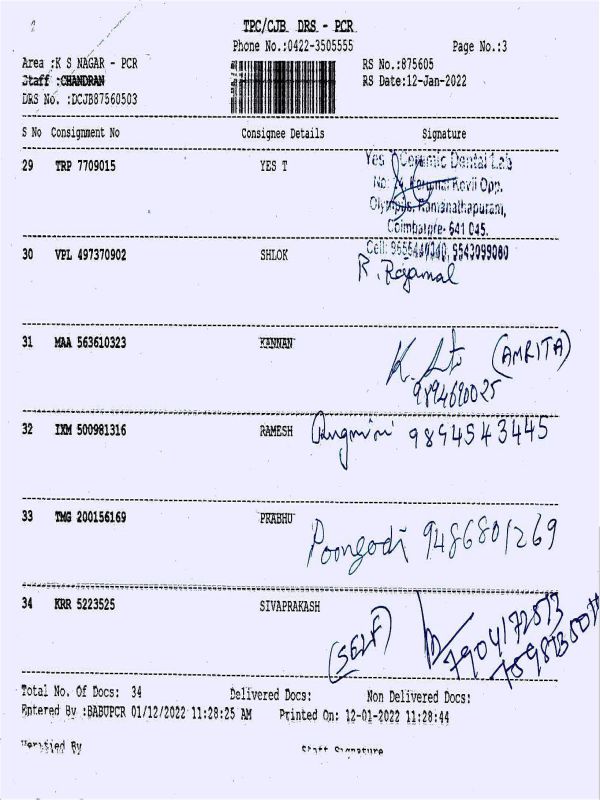 TPC/CJB DRS - PCR
Phone No.:0422-3505555 Page No.:3
Area :K S NAGAR - PCR RS No.:875605
Staff :CHANDRAN RS Date:12-Jan-2022
DRS No. :DCJB87560503
S No Consignment No Consignee Details Signature
29 TRP 7709015 YES T Yes T Ceramic Dental Lab
Kovil Opp.
Olympus, Ramanathapuram,
Coimbatore- 641 045.
Cell: 9543099080
30 VPL 497370902 SHLOK R. Rajamal
31 MAA 563610323 KANNAN K. (AMRITA)
9894690025
32 IXM 500981316 RAMESH Rugmini 9894543445
33 TMG 200156169 PRABHU Poongodi 9486801269
34 KRR 5223525 SIVAPRAKASH (SELF)
Total No. Of Docs: 34 Delivered Docs: Non Delivered Docs:
Entered By :BABUPCR 01/12/2022 11:28:25 AM Printed On: 12-01-2022 11:28:44
Verified By Staff Signature